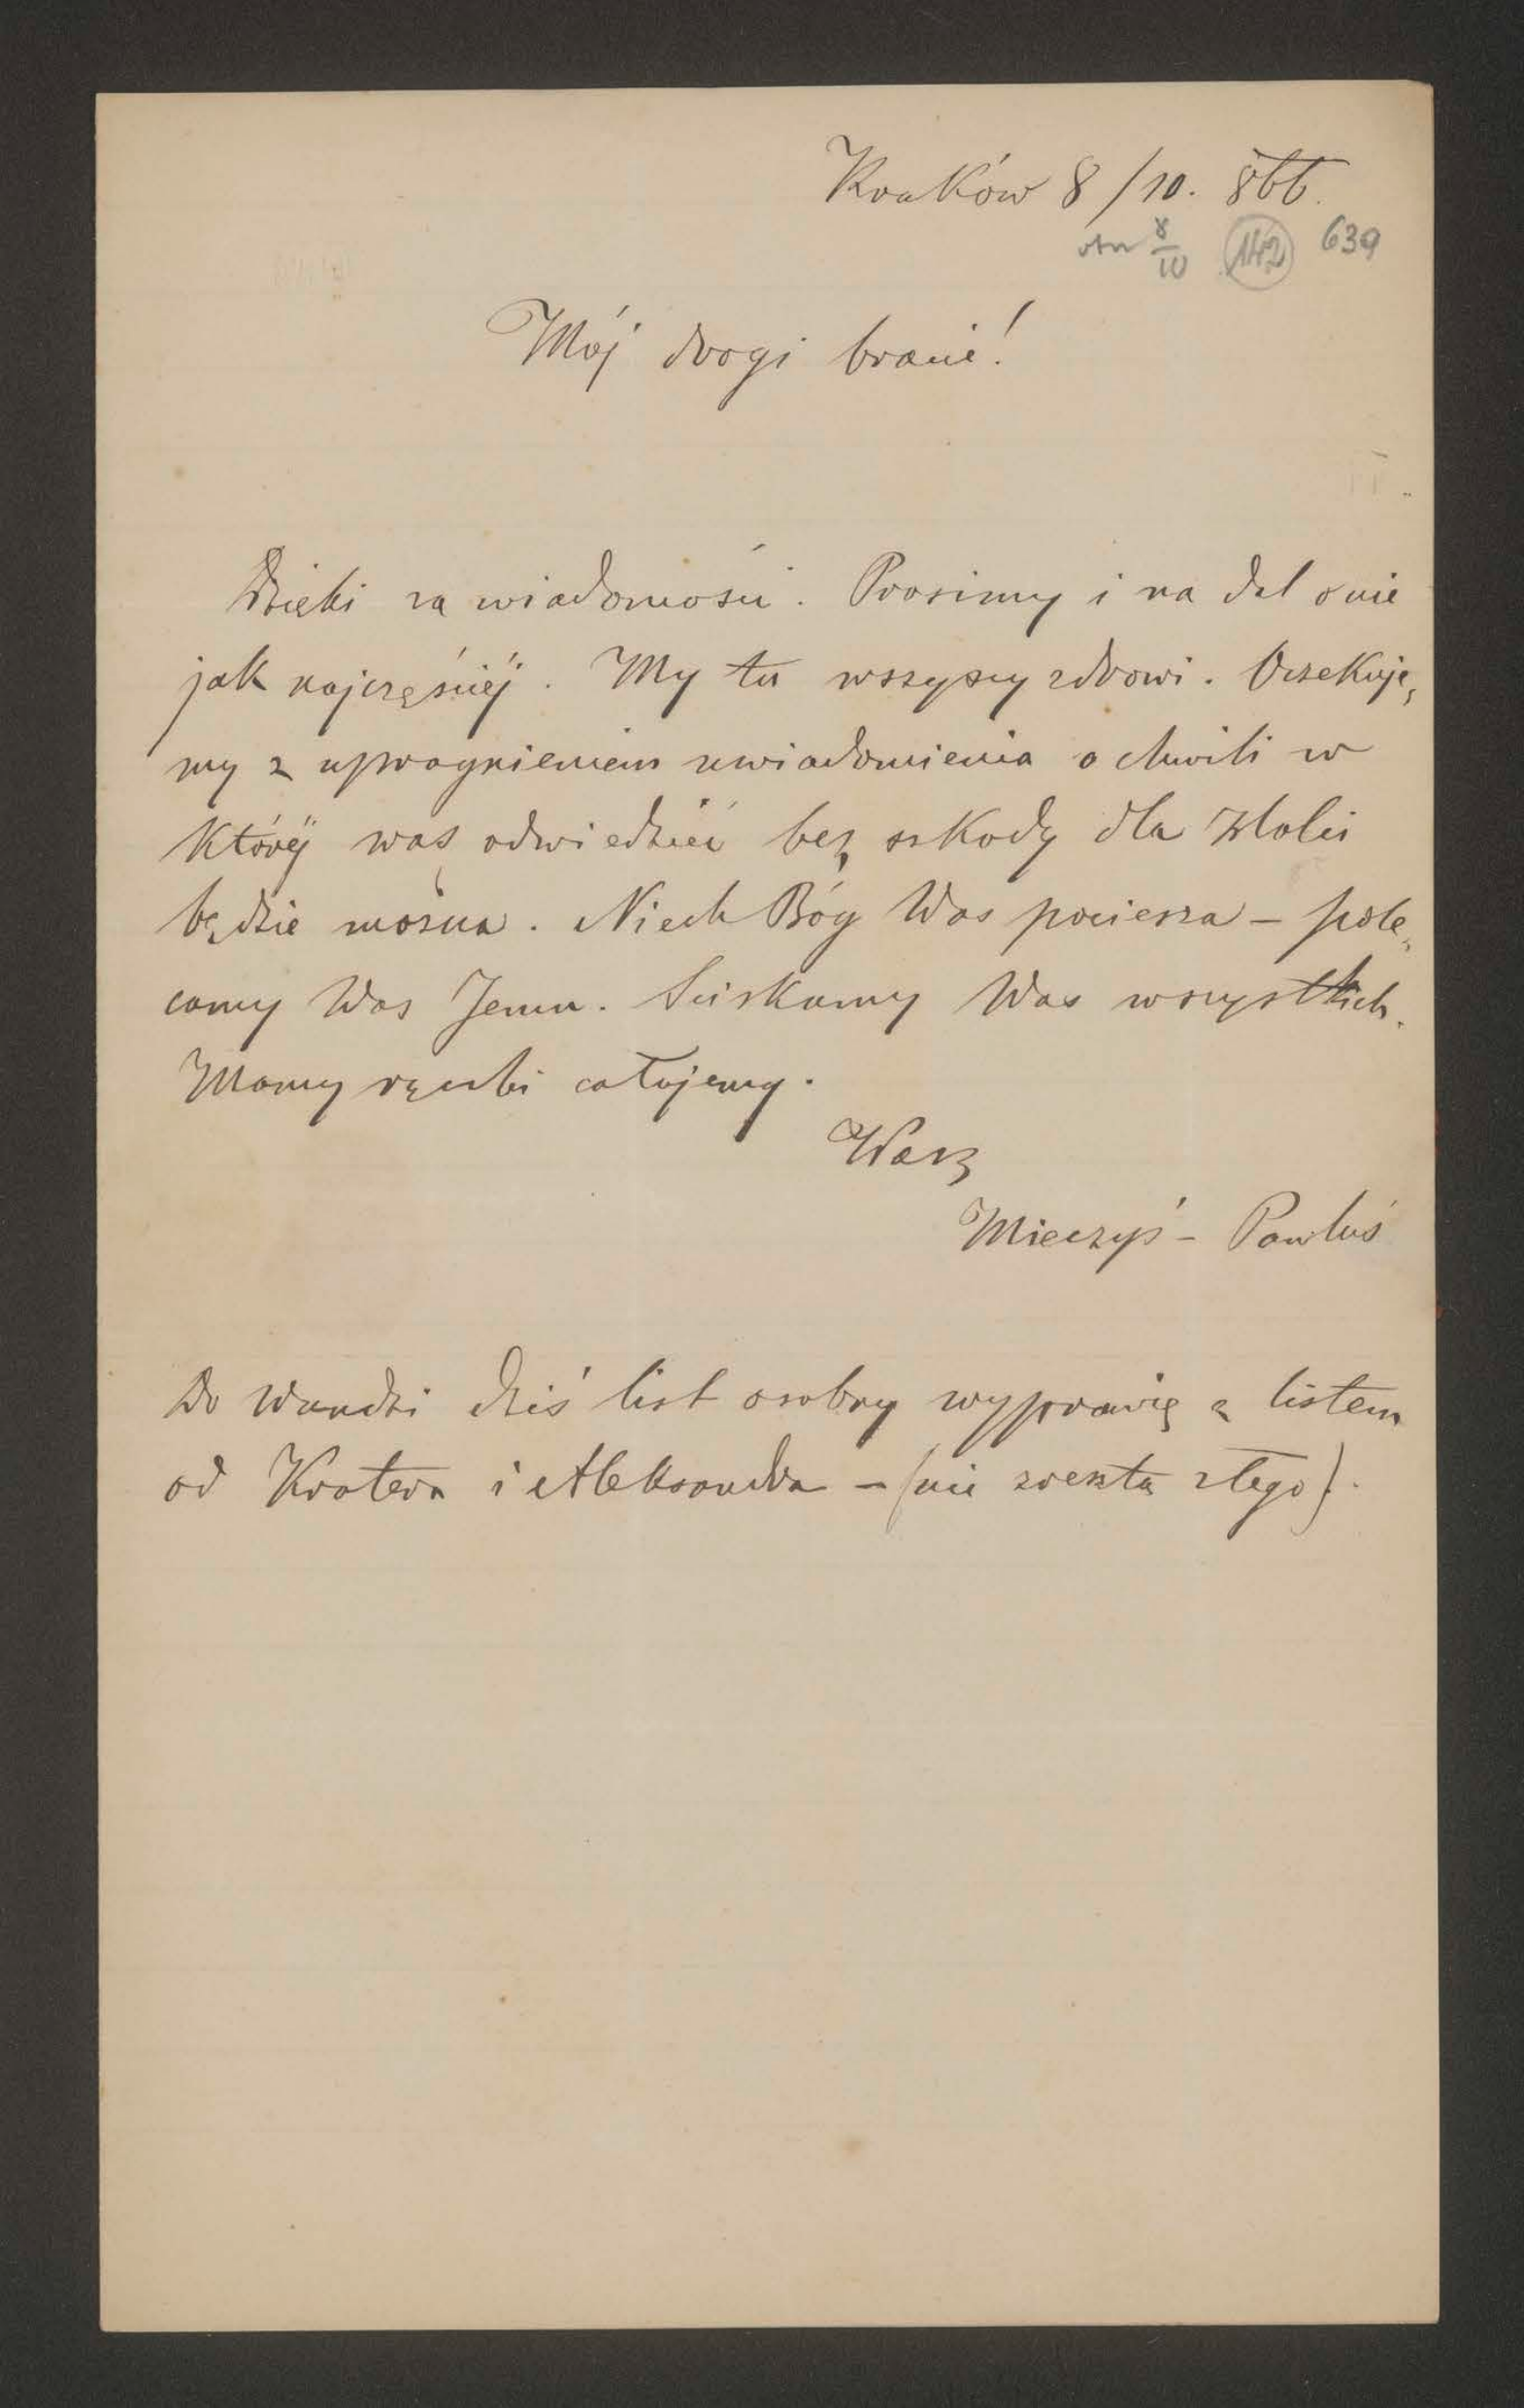 Kraków 8/10. 866.
8/10 142 639
Mój drogi bracie!
Dzięki za wiadomości. Prosimy i na dal o nie
jak najczęściéj. My tu wszyscy zdrowi. Oczekuje,
my z upragnieniem uwiadomienia o chwili w
któréj was odwiedzić bez szkody dla
będzie można. Niech Bóg Was pociesza – pole,
camy Was Jemu. Sciskamy Was wszystkich.
Mamy rączki całujemy.
Wasz
Mieczyś – Pawluś
Do Wandzi dziś list osobny wyprawię z listem
od Kratera i Aleksandra – (nic zresztą złego).